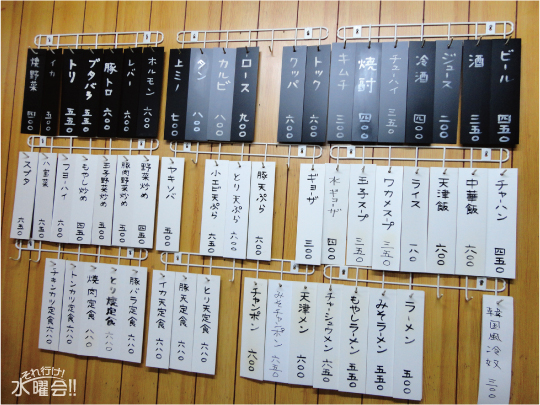 ビール 四五〇
酒 三五〇
ジュース 二〇〇
冷酒 四〇〇
チューハイ 三五〇
焼酎 四〇〇
キムチ 三〇〇
トック 六〇〇
クッパ 六〇〇
ロース 九〇〇
カルビ 八〇〇
タン 八〇〇
上ミノ 七〇〇
ホルモン 六〇〇
レバー 六〇〇
豚トロ 六〇〇
ブタバラ 五五〇
トリ 五五〇
イカ 五〇〇
焼野菜 四〇〇
チャーハン 四五〇
中華飯 六〇〇
天津飯 六〇〇
ライス 一八〇
ワカメスープ 三五〇
玉子スープ 三五〇
水ギョーザ 四〇〇
ギョーザ 三〇〇
豚天ぷら 六〇〇
とり天ぷら 六〇〇
小エビ天ぷら 六五〇
ヤキソバ 五五〇
野菜炒め 四五〇
豚肉野菜炒め 五五〇
玉子野菜炒め 五五〇
もやし炒め 四五〇
フヨーハイ 六〇〇
八宝菜 六五〇
スブタ 六五〇
韓国風冷奴 三〇〇
ラーメン 五〇〇
みそラーメン 五五〇
もやしラーメン 五五〇
チャーシュウメン 六五〇
天津メン 六〇〇
みそチャンポン 六五〇
チャンポン 六〇〇
とり天定食 六八〇
豚天定食 六八〇
イカ天定食 六八〇
豚バラ定食 六八〇
とり焼定食 六八〇
焼肉定食 六八〇
トンカツ定食 六八〇
チキンカツ定食 六八〇
それ行け!
水曜会!!